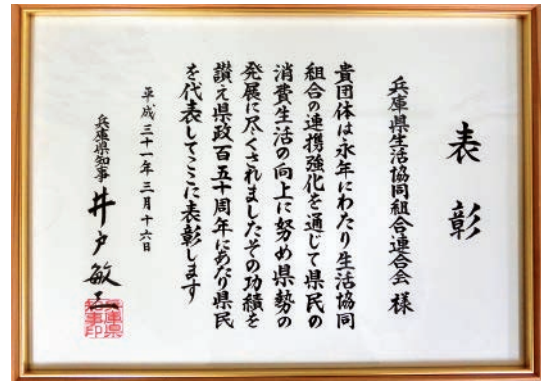 表彰
兵庫県生活協同組合連合会 様
貴団体は永年にわたり生活協同
組合の連携強化を通じて県民の
消費生活の向上に努め県勢の
発展に尽くされましたその功績を
讃え県政百五十周年にあたり県民
を代表してここに表彰します
平成三十一年三月十六日
兵庫県知事 井戸敏三
兵庫県知事印